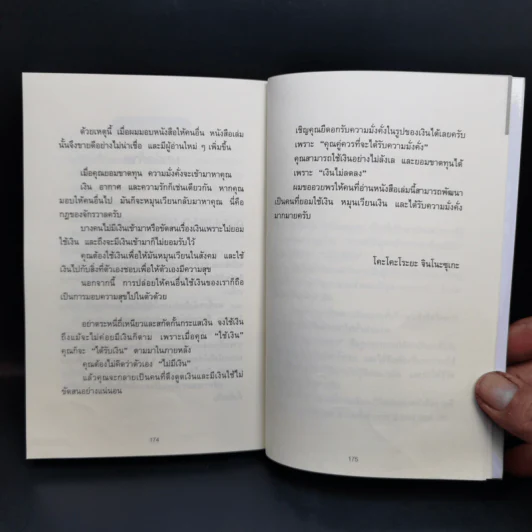 ด้วยเหตุนี้ เมื่อผมมอบหนังสือให้คนอื่น หนังสือเล่ม
นั้นจึงขายดีอย่างไม่น่าเชื่อ และมีผู้อ่านใหม่ ๆ เพิ่มขึ้น
เมื่อคุณยอมขาดทุน ความมั่งคั่งจะเข้ามาหาคุณ
เงิน อากาศ และความรักก็เช่นเดียวกัน หากคุณ
มอบให้คนอื่นไป มันก็จะหมุนเวียนกลับมาหาคุณ นี่คือ
กฎของจักรวาลครับ
บางคนไม่มีเงินเข้ามาหรือขัดสนเรื่องเงินเพราะไม่ยอม
ใช้เงิน และถึงจะมีเงินเข้ามาก็ไม่ยอมรับไว้
คุณต้องใช้เงินเพื่อให้มันหมุนเวียนในสังคม และใช้
เงินไปกับสิ่งที่ตัวเองชอบเพื่อให้ตัวเองมีความสุข
นอกจากนี้ การปล่อยให้คนอื่นใช้เงินของเราก็ถือ
เป็นการมอบความสุขไปในตัวด้วย
อย่าตระหนี่ถี่เหนียวและสกัดกั้นกระแสเงิน จงใช้เงิน
ถึงแม้จะไม่ค่อยมีเงินก็ตาม เพราะเมื่อคุณ "ใช้เงิน"
คุณก็จะ "ได้รับเงิน" ตามมาในภายหลัง
คุณต้องไม่คิดว่าตัวเอง "ไม่มีเงิน"
แล้วคุณจะกลายเป็นคนที่ดึงดูดเงินและมีเงินใช้ไม่
ขัดสนอย่างแน่นอน
174
เชิญคุณยืดอกรับความมั่งคั่งในรูปของเงินได้เลยครับ
เพราะ "คุณคู่ควรที่จะได้รับความมั่งคั่ง"
คุณสามารถใช้เงินอย่างไม่ลังเล และยอมขาดทุนได้
เพราะ "เงินไม่ลดลง"
ผมขออวยพรให้คนที่อ่านหนังสือเล่มนี้สามารถพัฒนา
เป็นคนที่ยอมใช้เงิน หมุนเวียนเงิน และได้รับความมั่งคั่ง
มากมายครับ
โคะโคะโระยะ จินโนะซุเกะ
175